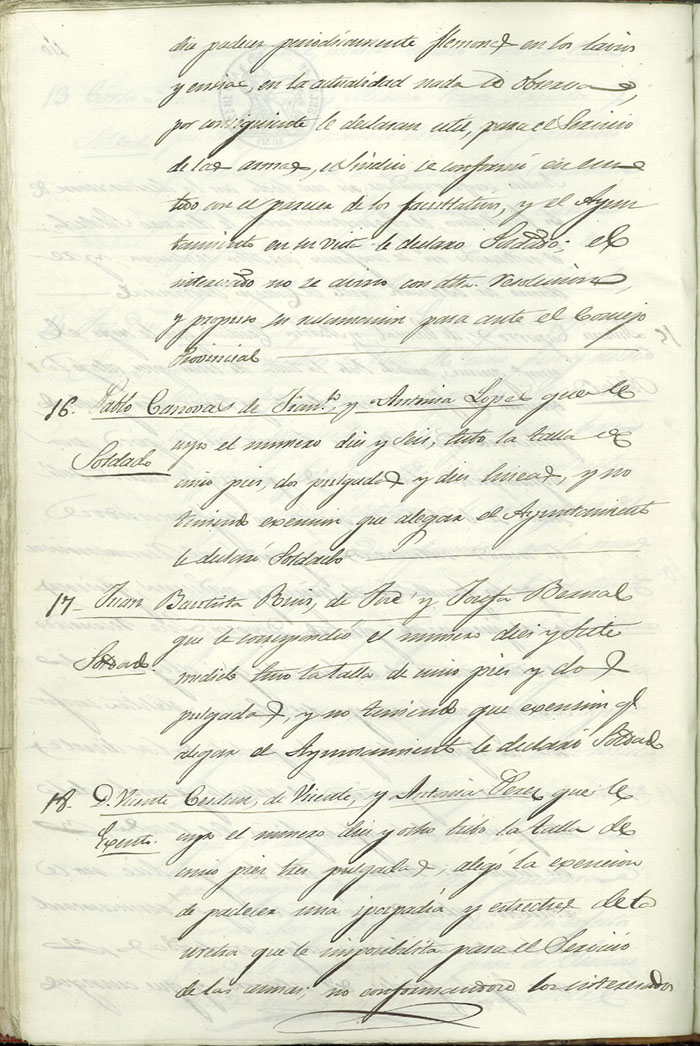 dia padecer periodicamente flemones en los lavios
y encias, en la actualidad nada se observa,
por consiguiente le declaran util, para el Servicio
de las armas, el Sindico se conformó en un
todo con el parecer de los facultativos, y el Ayun
tamiento en su vista le declaró Soldado: el
interesado no se avino con dha. resolucion,
y propuso su reclamacion para ante el Consejo
Provincial
16. Pablo Canovas de Fran.co, y Antonia Lopez que le
cupo el numero diez y seis, tubo la talla de
Soldado
cinco pies, dos pulgadas y diez lineas, y no
teniendo exencion que alegar el Ayuntamiento
le declaró Soldado
17. Juan Bautista Ruiz, de José y Josefa Bernal
que le correspondió el numero diez y siete
Soldado.
medido tuvo la talla de cinco pies y dos
pulgadas, y no teniendo que exencion q.
alegar el Ayuntamiento le declaró Soldado
18. D. Vicente Cerdan, de Vicente, y Antonia Perez que le
Exento. cupo el numero diez y ocho tubo la talla de
cinco pies tres pulgadas, alegó la exencion
de padecer una y estrechez de la
uretra que le imposibilita para el Servicio
de las armas; no conformandose los interesados